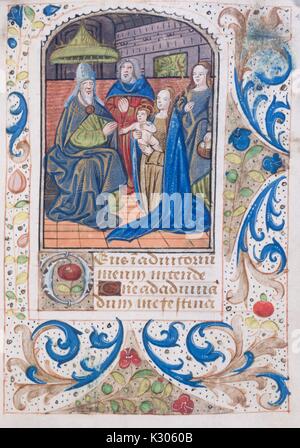 Deus in adiutoriu
meum intende
Domine ad adiuva
dum me festina
alamy
K3060B